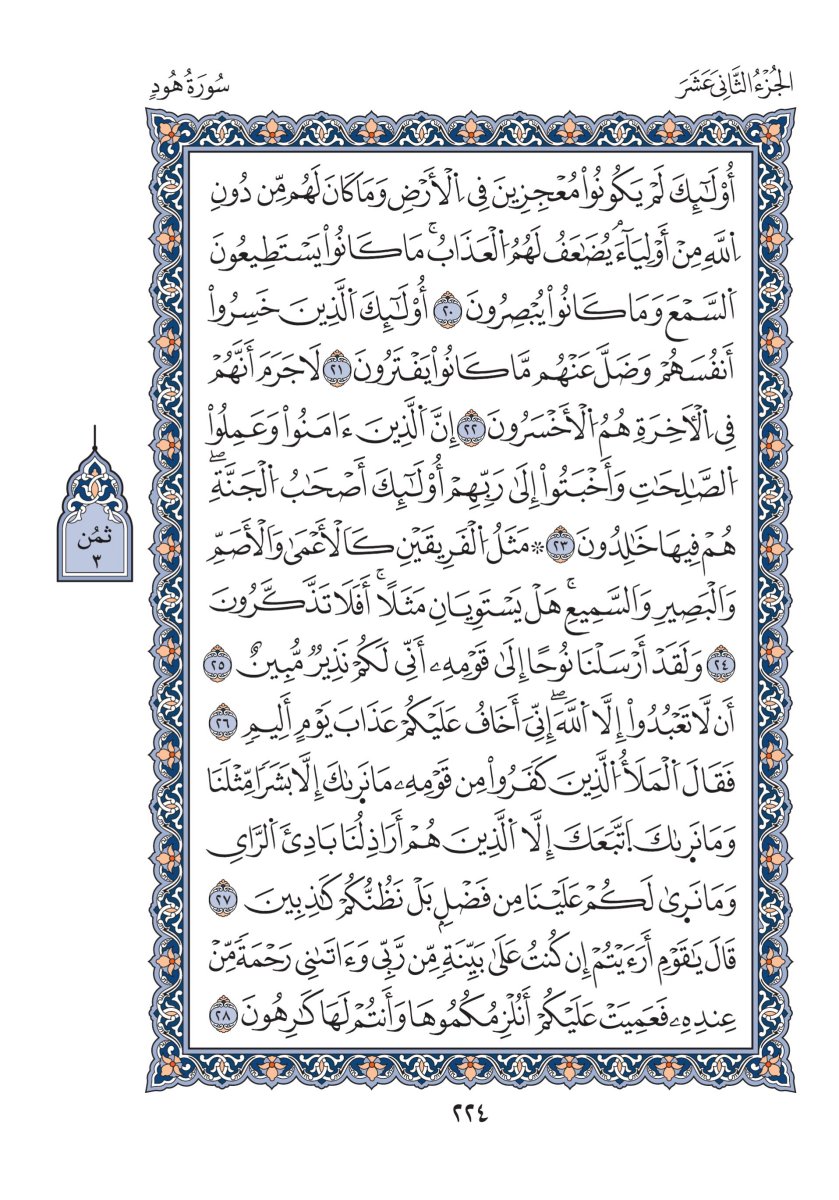 الجُزْءُ الثَّانِيَ عَشَرَ
سُورَةُ هُودٍ
أُوْلَٰٓئِكَ لَمْ يَكُونُواْ مُعْجِزِينَ فِي اِ۬لْأَرْضِ وَمَا كَانَ لَهُم مِّن دُونِ
اِ۬للَّهِ مِنْ أَوْلِيَآءَۘ يُضَٰعَفُ لَهُمُ اُ۬لْعَذَابُۚ مَا كَانُواْ يَسْتَطِيعُونَ
اَ۬لسَّمْعَ وَمَا كَانُواْ يُبْصِرُونَ ٢٠ أُوْلَٰٓئِكَ اَ۬لَّذِينَ خَسِرُواْ
أَنفُسَهُمْ وَضَلَّ عَنْهُم مَّا كَانُواْ يَفْتَرُونَ ٢١ لَا جَرَمَ أَنَّهُمْ
فِي اِ۬لْأٓخِرَةِ هُمُ اُ۬لْأَخْسَرُونَ ٢٢ إِنَّ اَ۬لَّذِينَ ءَامَنُواْ وَعَمِلُواْ
اُ۬لصَّٰلِحَٰتِ وَأَخْبَتُواْ إِلَىٰ رَبِّهِمْ أُوْلَٰٓئِكَ أَصْحَٰبُ اُ۬لْجَنَّةِۖ
هُمْ فِيهَا خَٰلِدُونَ ٢٣ ۞ مَثَلُ اُ۬لْفَرِيقَيْنِ كَالْأَعْمَىٰ وَالْأَصَمِّ
وَالْبَصِيرِ وَالسَّمِيعِۚ هَلْ يَسْتَوِيَانِ مَثَلًاۚ أَفَلَا تَذَّكَّرُونَ
٢٤ وَلَقَدْ أَرْسَلْنَا نُوحًا إِلَىٰ قَوْمِهِۦ أَنِّي لَكُمْ نَذِيرٌ مُّبِينٌ ٢٥
أَن لَّا تَعْبُدُواْ إِلَّا اَ۬للَّهَۖ إِنِّيَ أَخَافُ عَلَيْكُمْ عَذَابَ يَوْمٍ أَلِيمٍ ٢٦
فَقَالَ اَ۬لْمَلَأُ اُ۬لَّذِينَ كَفَرُواْ مِن قَوْمِهِۦ مَا نَرٜىٰكَ إِلَّا بَشَرًا مِّثْلَنَا
وَمَا نَرٜىٰكَ اَ۪تَّبَعَكَ إِلَّا اَ۬لَّذِينَ هُمْ أَرَاذِلُنَا بَادِئَ اَ۬لرَّايِ
وَمَا نَرٜىٰ لَكُمْ عَلَيْنَا مِن فَضْلِۢ بَلْ نَظُنُّكُمْ كَٰذِبِينَ ٢٧
قَالَ يَٰقَوْمِ أَرَءَيْتُمْ إِن كُنتُ عَلَىٰ بَيِّنَةٍ مِّن رَّبِّي وَءَاتَىٰنِي رَحْمَةً مِّنْ
عِندِهِۦ فَعَمِيَتْ عَلَيْكُمْ أَنُلْزِمُكُمُوهَا وَأَنتُمْ لَهَا كَٰرِهُونَ ٢٨
ثُمُن
٣
٢٢٤